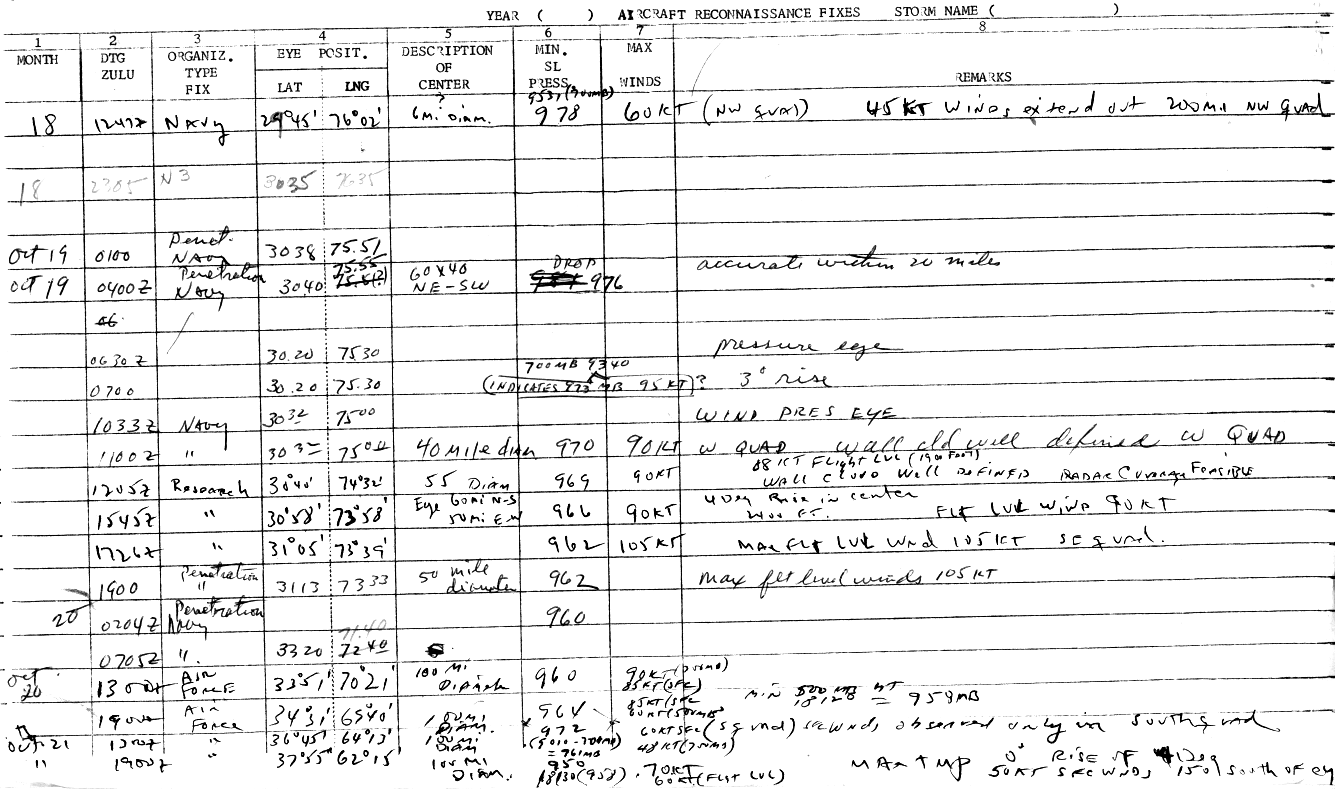 YEAR ( ) AIRCRAFT RECONNAISSANCE FIXES STORM NAME ( )
1 2 3 4 5 6 7 8
MONTH DTG ZULU ORGANIZ. TYPE FIX EYE POSIT. LAT LNG DESCRIPTION OF CENTER MIN. SL PRESS MAX WINDS REMARKS
18 1247Z NAVY 29°45' 76°02' 6 mi Diam. ? 978 60 KT (NW QUAD) 45 KT WINDS extend out 200 mi NW QUAD
18 2305 N3 3035 7635
Oct 19 0100 Penet. NAVY 3038 75.51
accurate within 20 miles
Oct 19 0400Z Penetration NAVY 3040 75.55 60 x 40 NE-SW DROP 976
06
0630Z 30.20 7530 pressure eye
700MB 9340
0700 30.20 75.30 (INDICATES 973 MB 95 KT)? 3° rise
1033Z NAVY 30 32 75 00 WIND PRES EYE
1100Z " 30 32 75 04 40 mile diam 970 90 KT W QUAD wall cld well defined W QUAD
88 KT Flight LVL (1900 Foot)
1205Z Research 30°40' 74°32' 55 Diam 969 90KT WALL CLOUD Well DEFINED RADAR Coverage FEASIBLE
1545Z " 30°58' 73°58' Eye 60mi N-S 50mi E-W 966 90KT 4 Deg Rise in center FLT LVL WIND 90 KT
1726Z " 31°05' 73°39' 962 105KT MAX FLT LVL WND 105 KT SE quad.
1900 Penetration " 3113 7333 50 mile diameter 962 max flt level winds 105 KT
20 0204Z Penetration Navy 960
71.40
0705Z ". 3320 7240
Oct 20 1300Z AIR FORCE 33°51' 70°21' 100 Mi Diameter 960 90KT (700MB) 85KT (SFC) MIN 500 MB HT 18128 = 958MB
1900Z AIR Force 34°31' 65°40' 100 Mi DIAM 964 85KT (SFC 60KT (500MB)
Oct 21 1300Z " 36°45' 64°13' 100 Mi DIAM 972 (9010-700MB) = 961MB 60KT SFC (S quad) 48KT (700MB) SFC WNDS observed only in South quad
" 1900Z " 37°55' 62°15' 100 Mi DIAM. 950 18130 (958) 70KT 60KT (FLT LVL) MAX TMP RISE OF 50KT SFC WNDS 150 South of eye